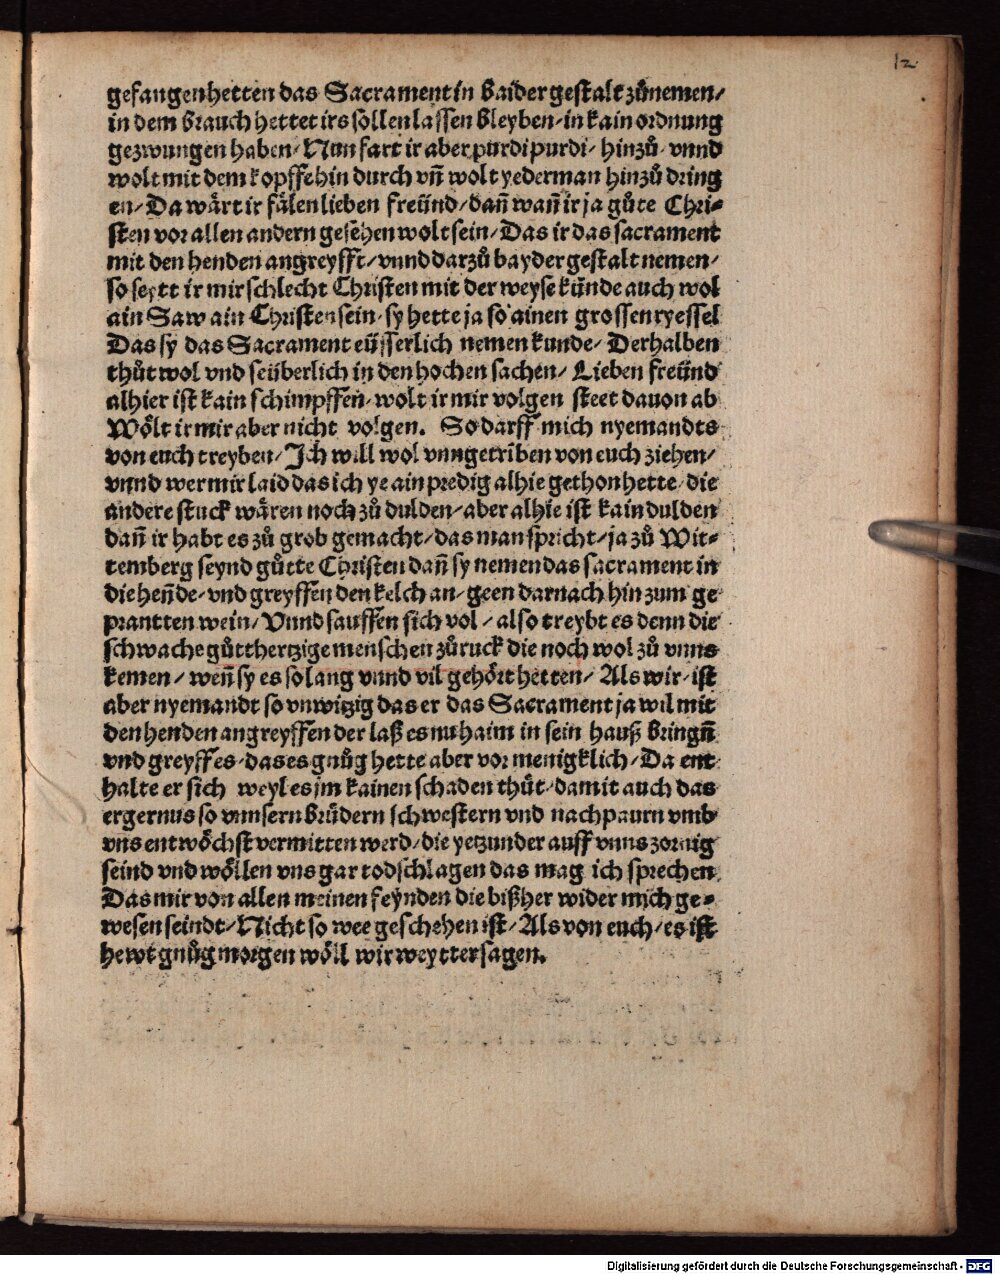 12
gefangen hetten das Sacrament in baider gestalt zůnemen/
in dem brauch hettet irs sollen lassen bleyben/ in kain ordnung
gezwungen haben/ Nun fart ir aber purdi purdi/ hinzů/ vnnd
wolt mit dem kopffe hin durch vñ wolt yederman hinzů dring
en/ Da wärt ir fälen lieben freünd/ dañ wañ ir ja gůte Chri⸗
sten vor allen andern gesehen wolt sein/ Das ir das sacrament
mit den henden angreyfft/ vnnd darzů bayder gestalt nemen/
so seytt ir mir schlecht Christen mit der weyse künde auch wol
ain Saw ain Christen sein/ sy hette ja so ainen grossen ryessel
Das sy das Sacrament eüsserlich nemen kunde/ Derhalben
thůt wol vnd seüberlich in den hochen sachen/ Lieben freünd
alhier ist kain schimpffen/ wolt ir mir volgen steet dauon ab
Wölt ir mir aber nicht volgen. So darff mich nyemandts
von euch treyben/ Ich will wol vnngetriben von euch ziehen/
vnnd wer mir laid das ich ye ain predig alhie gethon hette/ die
andere stuck wären noch zů dulden/ aber alhie ist kain dulden
dañ ir habt es zů grob gemacht/ das man spricht/ ja zů Wit⸗
temberg seynd gůtte Christen dañ sy nemen das sacrament in
die heñde/ vnd greyffen den kelch an/ geen darnach hin zum ge
prantten wein/ Vnnd sauffen sich vol/ also treybt es denn die
schwache gůtthertzige menschen zůruck die noch wol zů vnns
kemen/ weñ sy es so lang vnnd vil gehört hetten/ Als wir/ ist
aber nyemandt so vnwitzig das er das Sacrament ja wil mit
den henden angreyffen der laß es nu haim in sein hauß bringñ
vnd greyff es/ das es gnůg hette aber vor menigklich/ Da ent
halte er sich weyl es jm kainen schaden thůt/ damit auch das
ergernus so vnnsern brüdern schwestern vnd nachpaurn vmb
vns entwöchst vermitten werd/ die yetzunder auff vnns zornig
seind vnd wöllen vns gar todschlagen das mag ich sprechen
Das mir von allen meinen feynden die bißher wider mich ge⸗
wesen seindt/ Nicht so wee geschehen ist/ Als von euch/ es ist
hewt gnůg morgen wöll wir weytter sagen.
Digitalisierung gefördert durch die Deutsche Forschungsgemeinschaft - DFG